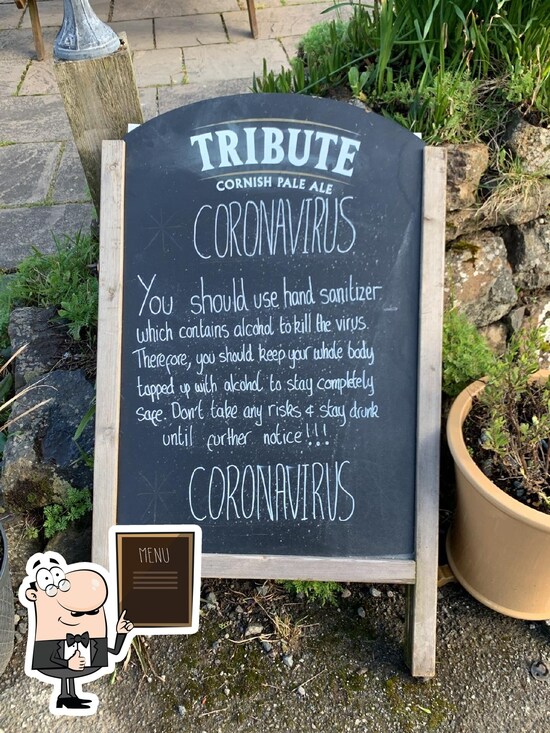 TRIBUTE
CORNISH PALE ALE
CORONAVIRUS
You should use hand sanitizer
which contains alcohol to kill the virus.
Therefore, you should keep your whole body
topped up with alcohol to stay completely
safe. Don't take any risks & stay drunk
until further notice!!!
CORONAVIRUS
MENU